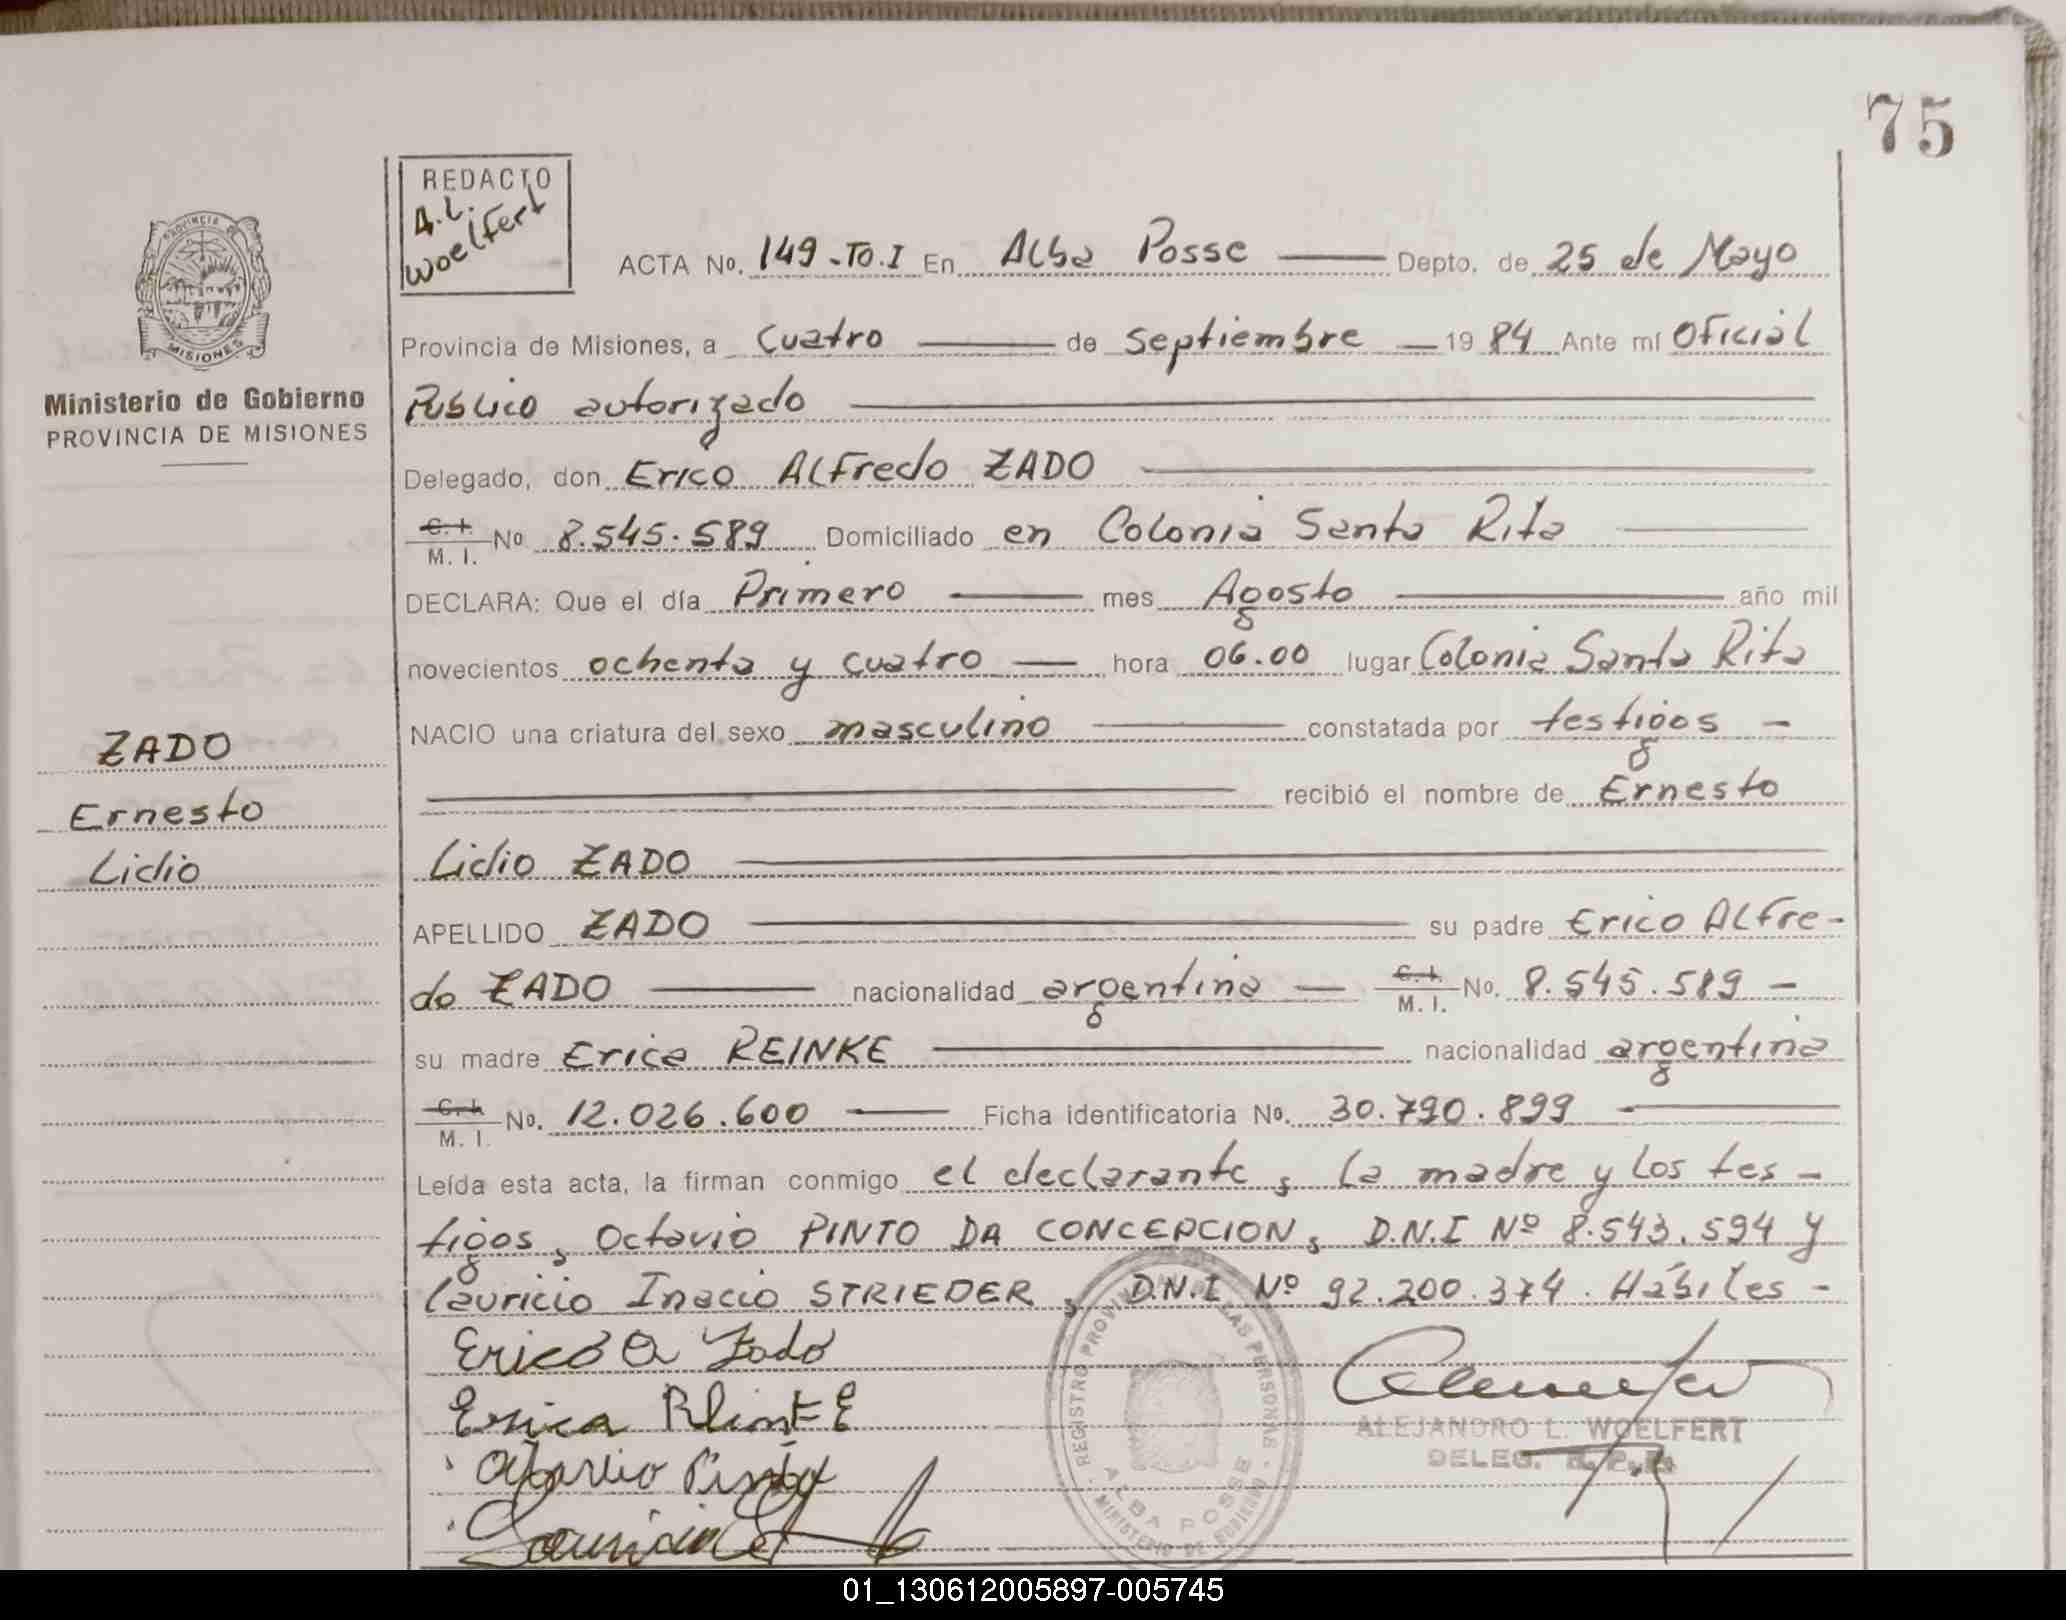 75
REDACTO
A.L.
Woelfert
PROVINCIA DE
MISIONES
Ministerio de Gobierno
PROVINCIA DE MISIONES
ACTA No. 149-To.I En Alba Posse Depto. de 25 de Mayo
Provincia de Misiones, a Cuatro de Septiembre 1984 Ante mí Oficial
Publico autorizado
Delegado, don Erico Alfredo ZADO
C.I. M.I. No 8.545.589 Domiciliado en Colonia Santa Rita
DECLARA: Que el día Primero mes Agosto año mil
novecientos ochenta y cuatro hora 06.00 lugar Colonia Santa Rita
NACIO una criatura del sexo masculino constatada por testigos -
recibió el nombre de Ernesto
Lidio ZADO
APELLIDO ZADO su padre Erico Alfre-
do ZADO nacionalidad argentina C.I. M.I. No. 8.545.589 -
su madre Erica REINKE nacionalidad argentina
C.I. M.I. No. 12.026.600 Ficha identificatoria No. 30.790.899
Leída esta acta, la firman conmigo el declarante, la madre y los tes-
tigos, Octavio PINTO DA CONCEPCION, D.N.I Nº 8.543.594 y
Lauricio Inacio STRIEDER, D.N.I Nº 92.200.374. Hábiles -
ZADO
Ernesto
Lidio
Erico A Zado
Erica
Octavio Pinto
REGISTRO PROVINCIAL DE LAS PERSONAS
ALBA POSSE
MINISTERIO DE GOBIERNO
ALEJANDRO L. WOELFERT
DELEG.
01_130612005897-005745